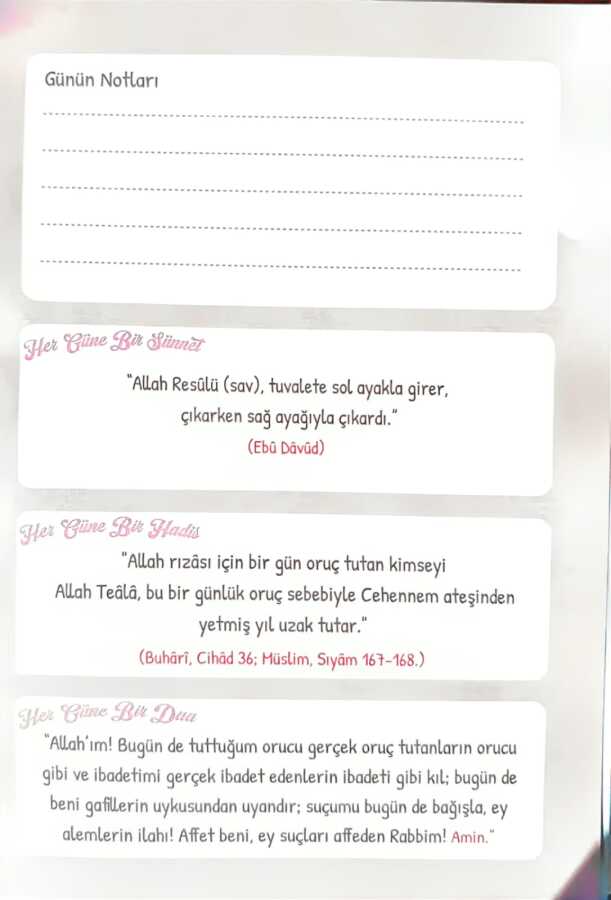 Günün Notları
Her Güne Bir Sünnet
"Allah Resûlü (sav), tuvalete sol ayakla girer,
çıkarken sağ ayağıyla çıkardı."
(Ebû Dâvûd)
Her Güne Bir Hadis
"Allah rızâsı için bir gün oruç tutan kimseyi
Allah Teâlâ, bu bir günlük oruç sebebiyle Cehennem ateşinden
yetmiş yıl uzak tutar."
(Buhârî, Cihâd 36; Müslim, Sıyâm 167-168.)
Her Güne Bir Dua
"Allah'ım! Bugün de tuttuğum orucu gerçek oruç tutanların orucu
gibi ve ibadetimi gerçek ibadet edenlerin ibadeti gibi kıl; bugün de
beni gafillerin uykusundan uyandır; suçumu bugün de bağışla, ey
alemlerin ilahı! Affet beni, ey suçları affeden Rabbim! Amin."